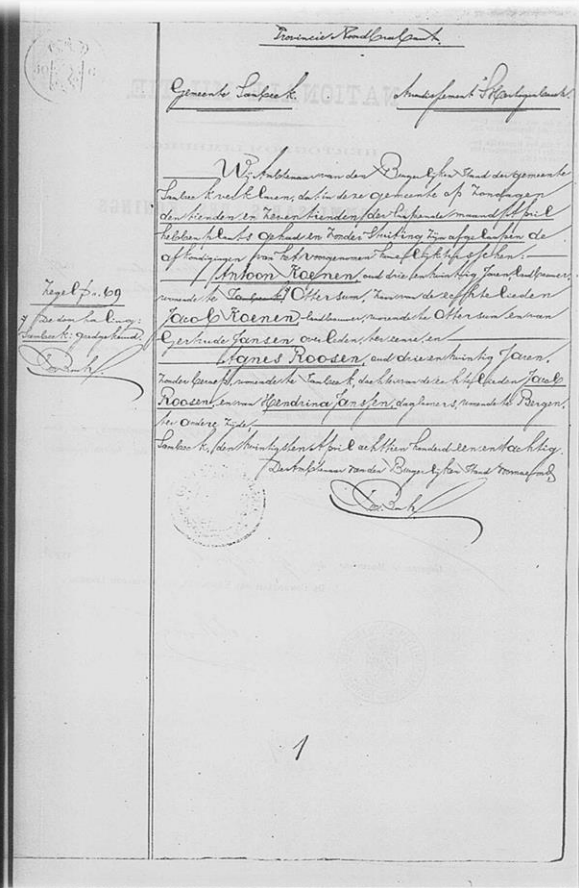 Provincie Noordbrabant.
Gemeente Sambeek. Arrondissement 'S Hertogenbosch.
Wij Ambtenaar van den Burgerlijken Stand der gemeente
Sambeek verklaren, dat in deze gemeente op Zondagen
den tienden en zeventienden der loopende maand April
hebben plaats gehad en zonder Stuiting zijn afgeloopen de
afkondigingen van het voorgenomen huwelijk tusschen.
Antoon Koenen, oud drie en twintig Jaren, landbouwer,
wonende te Ottersum, zoon van de echtelieden
Jacob Koenen landbouwer, wonende te Ottersum en van
Gertrude Jansen overleden, ter eenre, en
Agnes Roosen, oud drie en twintig Jaren,
zonder beroep, wonende te Sambeek, dochter van de echtelieden Jacob
Roosen, en van Hendrina Janssen, daglooners, wonende te Bergen,
ter andere zijde.
Sambeek, den twintigsten April achttien honderd een en tachtig.
De Ambtenaar van den Burgerlijken Stand voornoemd,
Zegel f 0.69
De doorhaling:
Sambeek: goedgekeurd.
1